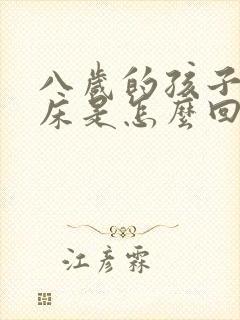 八歲的孩子
床是怎麼回
江彥霖